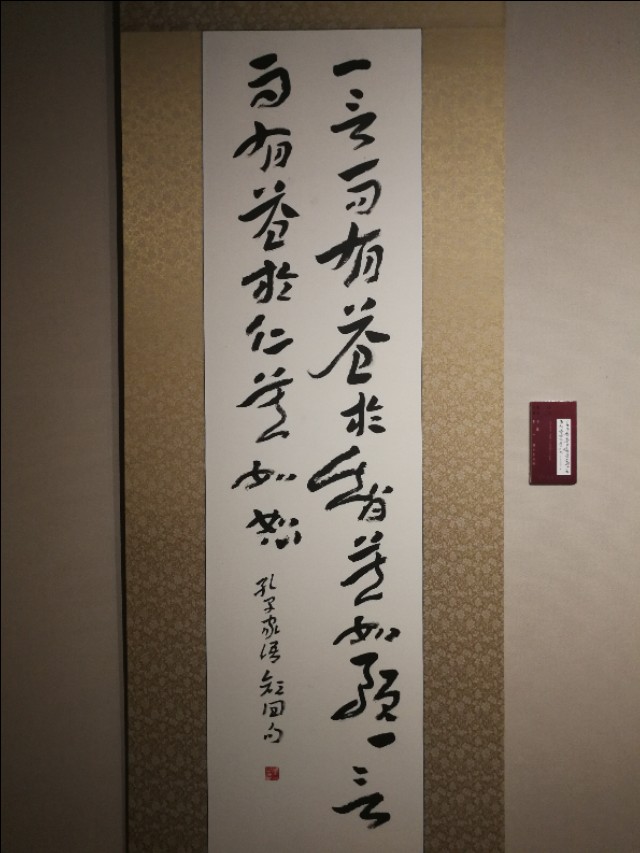 一言而有益於智莫如預一言
而有益於仁莫如恕
孔子家語顏回句